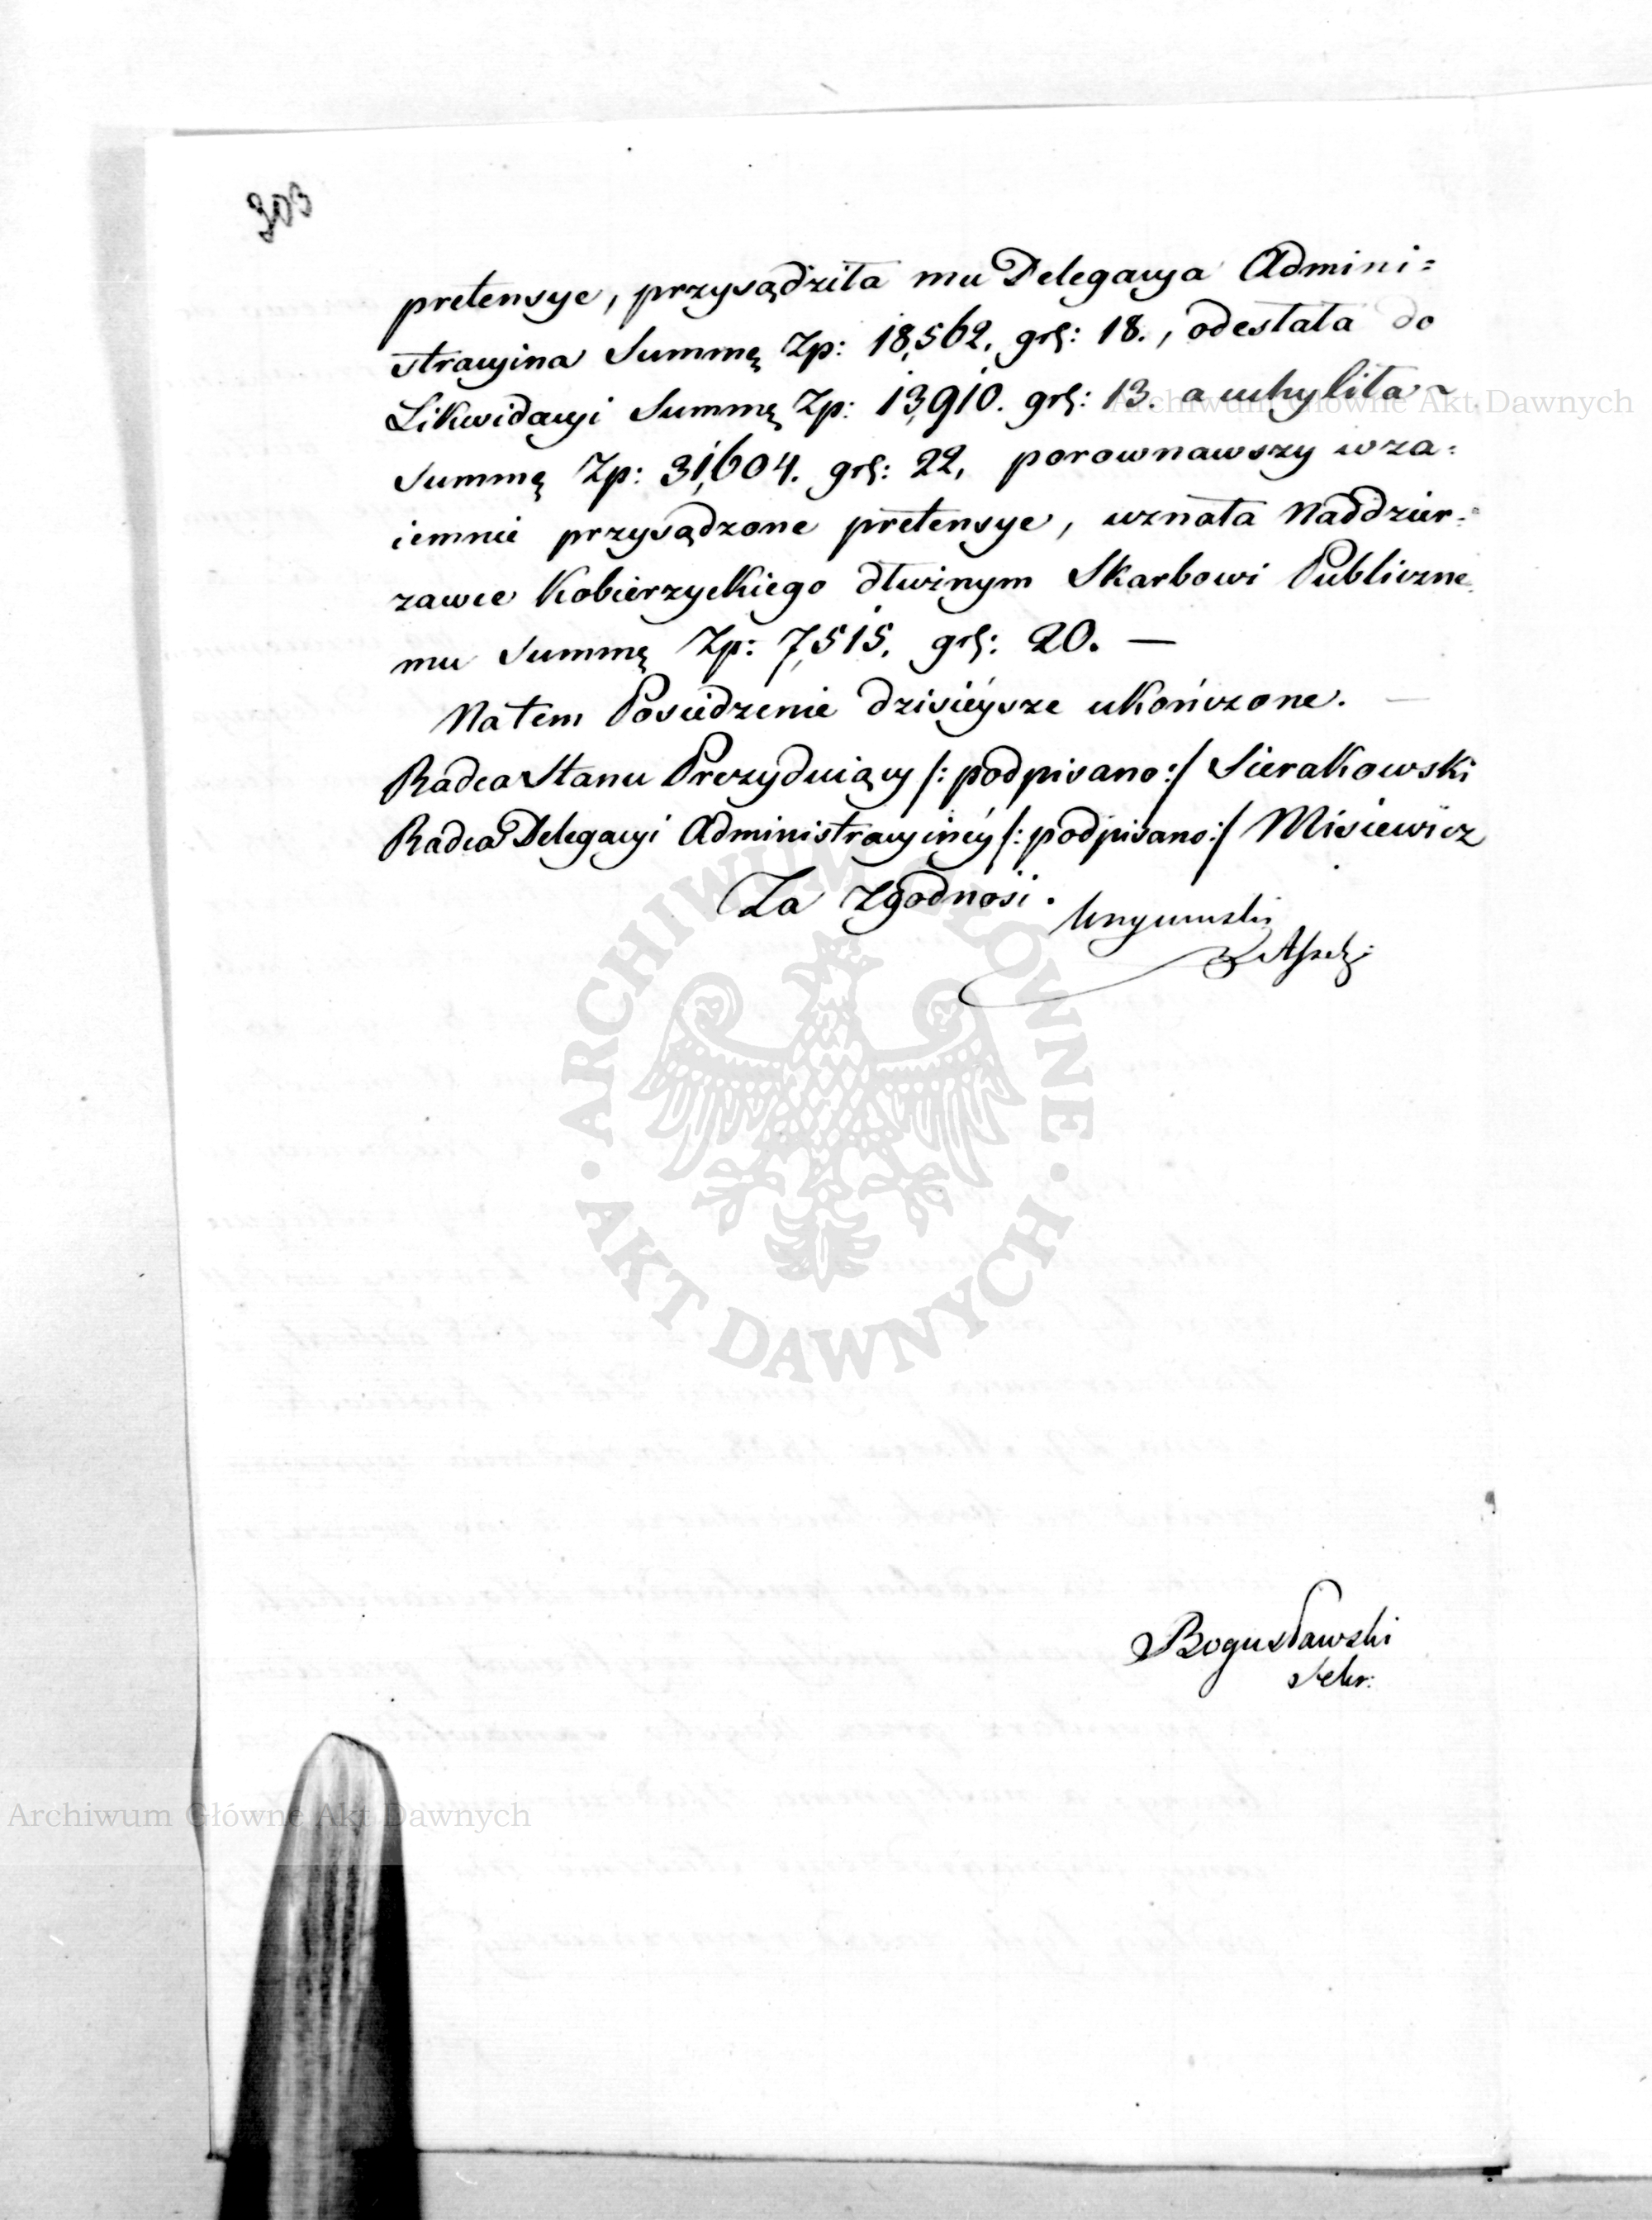 303
pretensye, przysądziła mu Delegacya Admini=
stracyina Summę Zp: 18,562. grs: 18., odesłała do
Likwidacyi Summę Zp: 13,910. grs: 13. a uchyliła ~
Summę Zp: 31,604. grs: 22, porownawszy wza=
iemnie przysądzone pretensye, uznała Naddzier=
zawce Kobierzyckiego dłużnym Skarbowi Publiczne
mu Summę Zp: 7,515. grs: 20. —
Na tem Posiedzenie dzisieysze ukończone. —
Radca Stanu Prezyduiący /: podpisano :/ Sierakowski
Radca Delegacyi Administracyinéy /: podpisano :/ Misiewicz
Za Zgodność.
Bogusławski
Sekr:
ARCHIWUM GŁÓWNE · AKT DAWNYCH ·
Archiwum Główne Akt Dawnych
Archiwum Główne Akt Dawnych